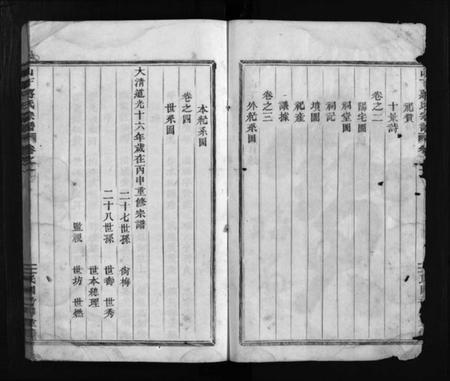 祀賛
十景詩
卷之二
陽宅圖
祠堂圖
祠記
墳圖
祀產
議據
卷之三
外紀系圖
本紀系圖
卷之四
世系圖
大清道光十六年歲在丙申重修宗譜
二十七世孫 街梅
二十八世孫 世香 世秀
世本總理
監視 世坊 世燃